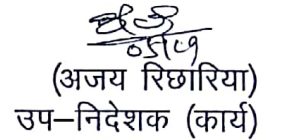 (अजय रिछारिया)
उप–निदेशक (कार्य)